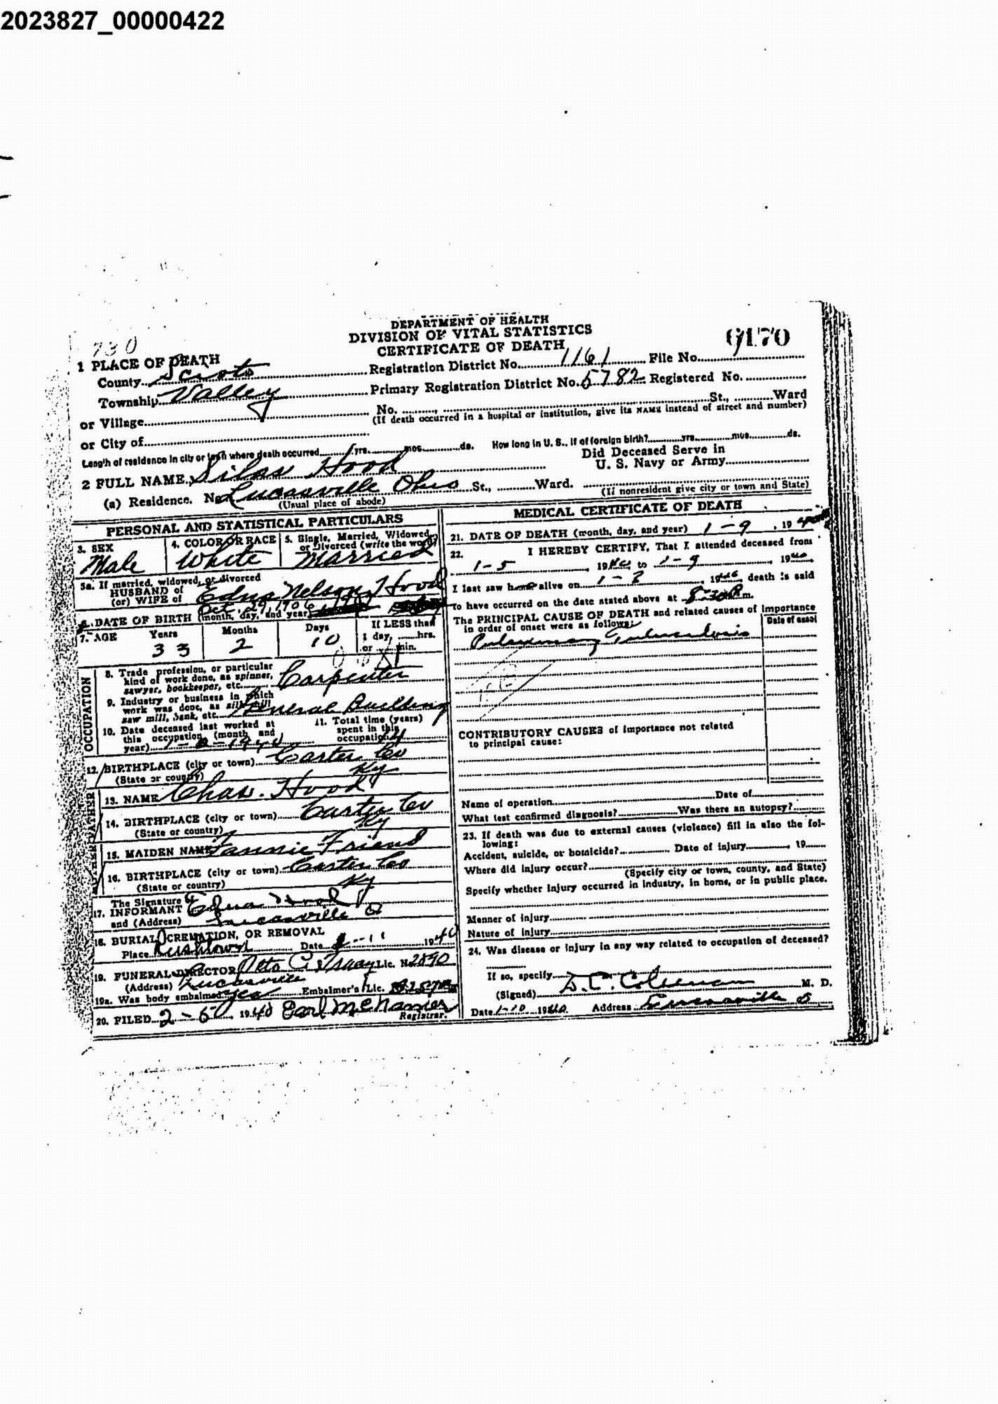 2023827_00000422
DEPARTMENT OF HEALTH
DIVISION OF VITAL STATISTICS
CERTIFICATE OF DEATH
730
6170
1 PLACE OF DEATH
County Scioto
Registration District No. 1161 File No.
Township Valley
Primary Registration District No. 5782 Registered No.
or Village
No. St., Ward
(If death occurred in a hospital or institution, give its NAME instead of street and number)
or City of
Length of residence in city or town where death occurred yrs. mos. ds. How long in U. S., if of foreign birth? yrs. mos. ds.
2 FULL NAME Silas Hood
Did Deceased Serve in
U. S. Navy or Army
(a) Residence. No. Lucasville Ohio St., Ward.
(Usual place of abode)
(If nonresident give city or town and State)
PERSONAL AND STATISTICAL PARTICULARS
3. SEX
Male
4. COLOR OR RACE
White
5. Single, Married, Widowed, or Divorced (write the word)
Married
5a. If married, widowed, or divorced
HUSBAND of
(or) WIFE of
Edna Nelson Hood
6. DATE OF BIRTH (month, day, and year) Oct. 29, 1906
7. AGE Years Months Days If LESS than
1 day, hrs.
or min.
33 2 10
OCCUPATION
8. Trade, profession, or particular
kind of work done, as spinner,
sawyer, bookkeeper, etc. Carpenter
9. Industry or business in which
work was done, as silk mill,
saw mill, bank, etc. General Building
10. Date deceased last worked at
this occupation (month and
year) 1940
11. Total time (years)
spent in this
occupation
12. BIRTHPLACE (city or town) Carter Co
(State or county) Ky
FATHER
13. NAME Chas. Hood
14. BIRTHPLACE (city or town) Carter Co
(State or country) Ky
15. MAIDEN NAME Fannie Friend
16. BIRTHPLACE (city or town) Carter Co
(State or country) Ky
17. The Signature of
INFORMANT Edna Hood
and (Address) Lucasville O
18. BURIAL, CREMATION, OR REMOVAL
Place Rushtown Date 1-11 1940
19. FUNERAL DIRECTOR Otto C. Lic. No.
(Address) Lucasville
19a. Was body embalmed yes Embalmer's Lic.
20. FILED 2-5 1940 Earl
Registrar.
MEDICAL CERTIFICATE OF DEATH
21. DATE OF DEATH (month, day, and year) 1-9, 1940
22. I HEREBY CERTIFY, That I attended deceased from
1-5, 1940 to 1-9 1940
I last saw h alive on 1- 1940 death is said
to have occurred on the date stated above at m.
The PRINCIPAL CAUSE OF DEATH and related causes of importance
in order of onset were as follows:
Date of onset
Pulmonary Tuberculosis
CONTRIBUTORY CAUSES of importance not related
to principal cause:
Name of operation Date of
What test confirmed diagnosis? Was there an autopsy?
23. If death was due to external causes (violence) fill in also the fol-
lowing:
Accident, suicide, or homicide? Date of injury 19
Where did injury occur?
(Specify city or town, county, and State)
Specify whether injury occurred in industry, in home, or in public place.
Manner of injury
Nature of injury
24. Was disease or injury in any way related to occupation of deceased?
If so, specify
(Signed) M. D.
Date 1-10 1940 Address Lucasville O